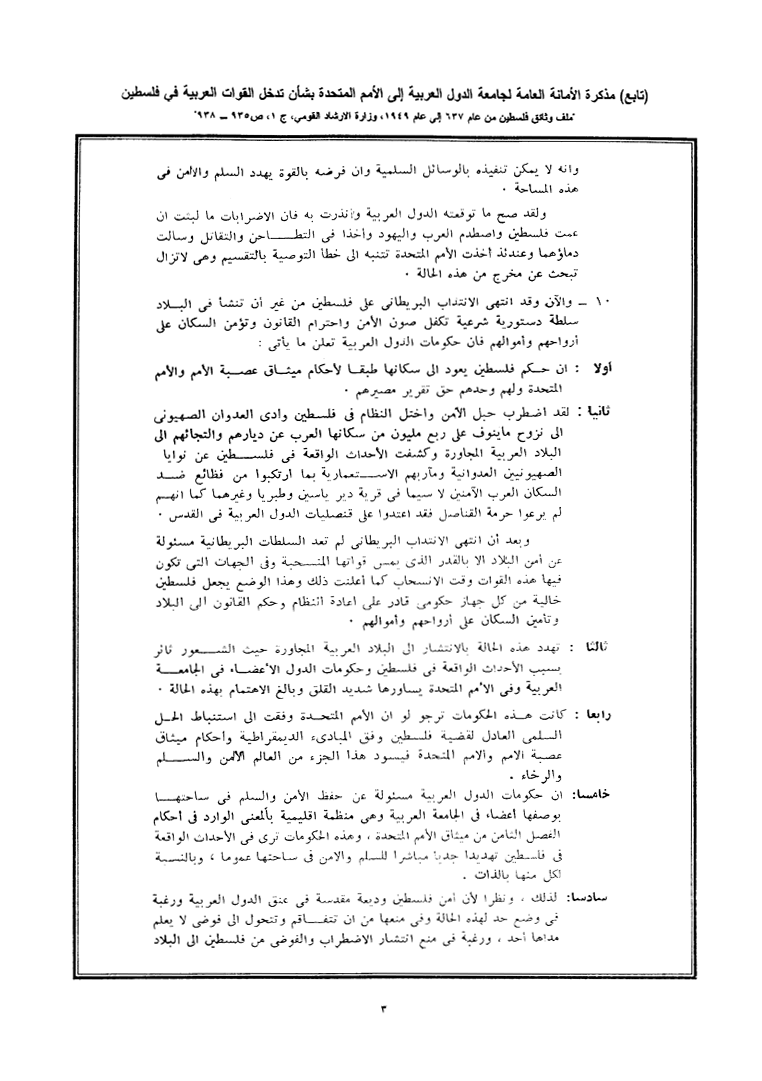 (تابع) مذكرة الأمانة العامة لجامعة الدول العربية إلى الأمم المتحدة بشأن تدخل القوات العربية في فلسطين
"ملف وثائق فلسطين من عام ٦٣٧ إلى عام ١٩٤٩، وزارة الارشاد القومي، ج ١، ص ٩٣٥ – ٩٣٨"
وانه لا يمكن تنفيذه بالوسائل السلمية وان فرضه بالقوة يهدد السلم والامن فى
هذه المساحة ٠
ولقد صح ما توقعته الدول العربية وأنذرت به فان الاضرابات ما لبثت ان
عمت فلسطين واصطدم العرب واليهود وأخذا فى التطاحن والتقاتل وسالت
دماؤهما وعندئذ أخذت الأمم المتحدة تتنبه الى خطأ التوصية بالتقسيم وهى لاتزال
تبحث عن مخرج من هذه الحالة ٠
١٠ – والآن وقد انتهى الانتداب البريطانى على فلسطين من غير أن تنشأ فى البلاد
سلطة دستورية شرعية تكفل صون الأمن واحترام القانون وتؤمن السكان على
أرواحهم وأموالهم فان حكومات الدول العربية تعلن ما يأتى :
أولا : ان حكم فلسطين يعود الى سكانها طبقا لأحكام ميثاق عصبة الأمم والأمم
المتحدة ولهم وحدهم حق تقرير مصيرهم ٠
ثانيا : لقد اضطرب حبل الأمن واختل النظام فى فلسطين وادى العدوان الصهيونى
الى نزوح ماينوف على ربع مليون من سكانها العرب عن ديارهم والتجائهم الى
البلاد العربية المجاورة وكشفت الأحداث الواقعة فى فلسطين عن نوايا
الصهيونيين العدوانية ومآربهم الاستعمارية بما ارتكبوا من فظائع ضد
السكان العرب الآمنين لا سيما فى قرية دير ياسين وطبريا وغيرهما كما انهم
لم يرعوا حرمة القناصل فقد اعتدوا على قنصليات الدول العربية فى القدس ٠
وبعد أن انتهى الانتداب البريطانى لم تعد السلطات البريطانية مسئولة
عن أمن البلاد الا بالقدر الذى يمس قواتها المنسحبة وفى الجهات التى تكون
فيها هذه القوات وقت الانسحاب كما أعلنت ذلك وهذا الوضع يجعل فلسطين
خالية من كل جهاز حكومى قادر على اعادة النظام وحكم القانون الى البلاد
وتأمين السكان على أرواحهم وأموالهم ٠
ثالثا : تهدد هذه الحالة بالانتشار الى البلاد العربية المجاورة حيث الشعور ثائر
بسبب الأحداث الواقعة فى فلسطين وحكومات الدول الأعضاء فى الجامعة
العربية وفى الأمم المتحدة يساورها شديد القلق وبالغ الاهتمام بهذه الحالة ٠
رابعا : كانت هذه الحكومات ترجو لو ان الأمم المتحدة وفقت الى استنباط الحل
السلمى العادل لقضية فلسطين وفق المبادىء الديمقراطية واحكام ميثاق
عصبة الامم والامم المتحدة فيسود هذا الجزء من العالم الأمن والسلم
والرخاء ٠
خامسا: ان حكومات الدول العربية مسئولة عن حفظ الأمن والسلم فى ساحتها
بوصفها أعضاء فى الجامعة العربية وهى منظمة اقليمية بالمعنى الوارد فى أحكام
الفصل الثامن من ميثاق الأمم المتحدة ، وهذه الحكومات ترى فى الأحداث الواقعة
فى فلسطين تهديدا جديا مباشرا للسلم والامن فى ساحتها عموما ، وبالنسبة
لكل منها بالذات ٠
سادسا: لذلك ، ونظرا لأن أمن فلسطين وديعة مقدسة فى عنق الدول العربية ورغبة
فى وضع حد لهذه الحالة وفى منعها من ان تتفاقم وتتحول الى فوضى لا يعلم
مداها أحد ، ورغبة فى منع انتشار الاضطراب والفوضى من فلسطين الى البلاد
٣